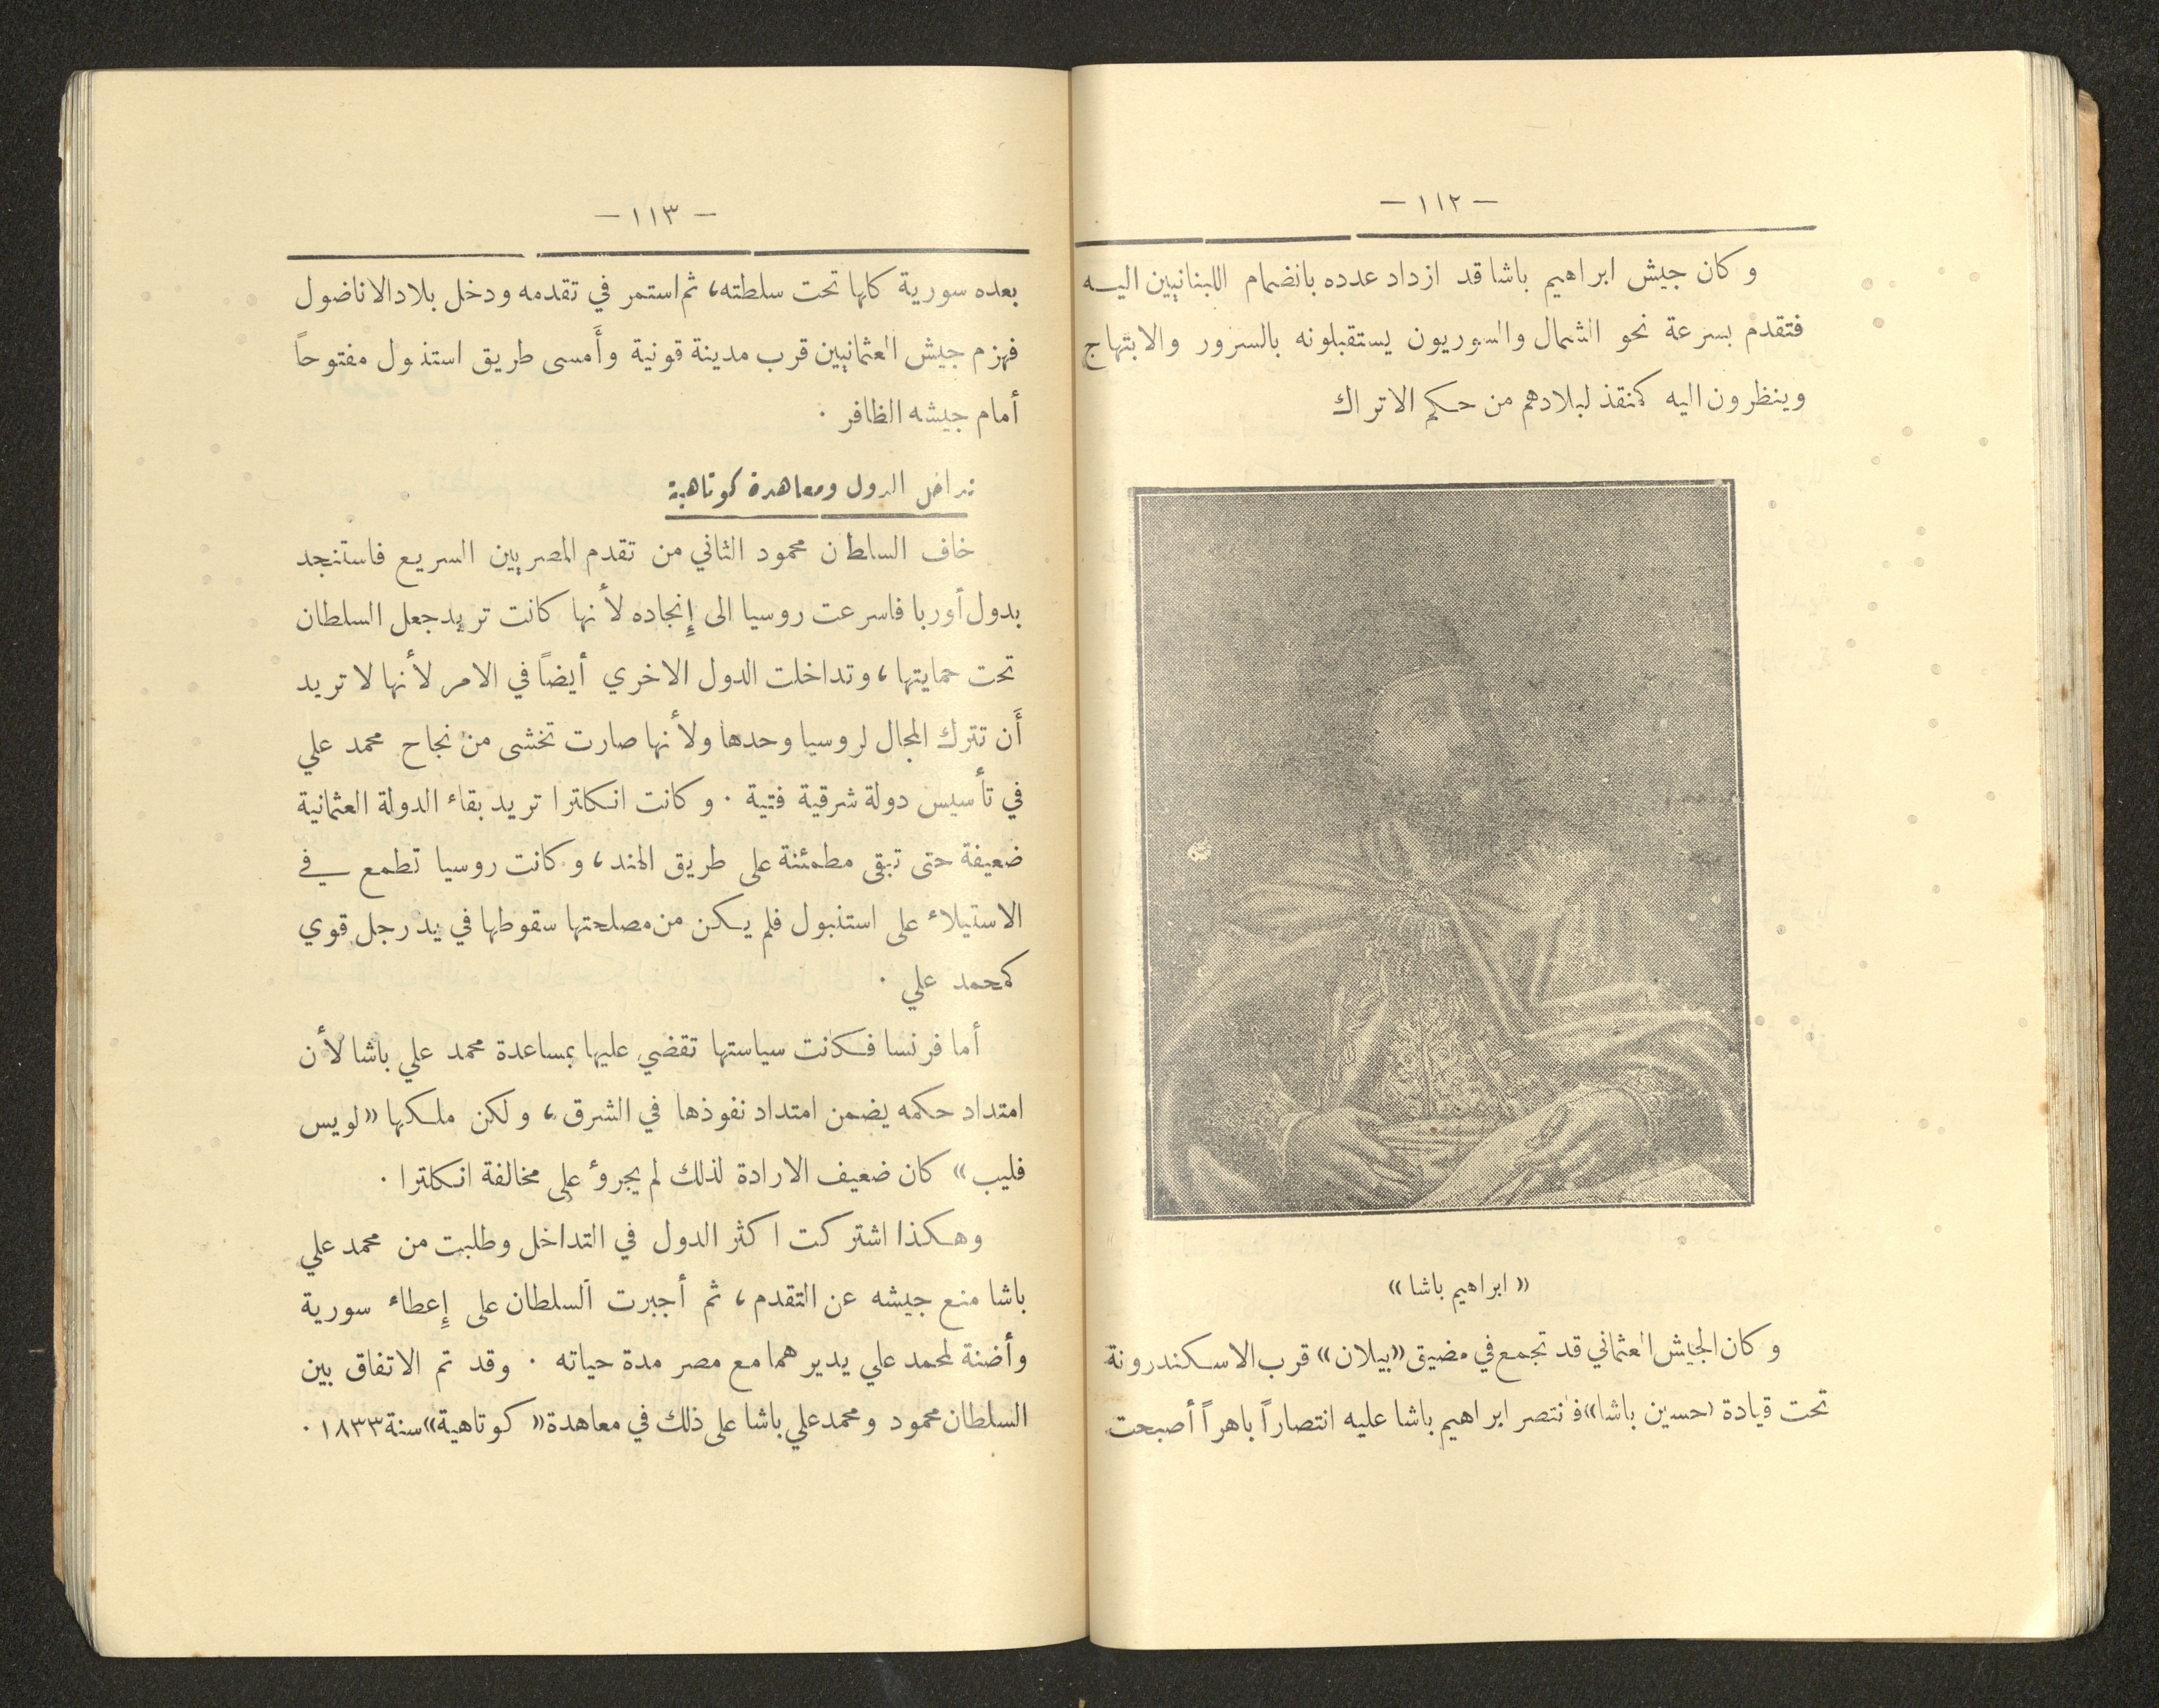 — ١١٢ —
وكان جيش ابراهيم باشا قد ازداد عدده بانضمام اللبنانيين اليـه
فتقدم بسرعة نحو الشمال والسوريون يستقبلونه بالسرور والابتهاج
وينظرون اليه كمنقذ لبلادهم من حكم الاتراك
«ابراهيم باشا»
وكان الجيش العثماني قد تجمع في مضيق «بيلان» قرب الاسكندرونة
تحت قيادة (حسين باشا» فانتصر ابراهيم باشا عليه انتصاراً باهراً أصبحت
— ١١٣ —
بعده سورية كلها تحت سلطته، ثم استمر في تقدمه ودخل بلاد الاناضول
فهزم جيش العثمانيين قرب مدينة قونية وأَمسى طريق استنبول مفتوحاً
أمام جيشه الظافر ·
تداخل الدول ومعاهدة كوتاهية
خاف السلطان محمود الثاني من تقدم المصريين السريع فاستنجد
بدول أوربا فاسرعت روسيا الى إِنجاده لأنها كانت تريد جعل السلطان
تحت حمايتها، وتداخلت الدول الاخري أيضاً في الامر لأنها لا تريد
أَن تترك المجال لروسيا وحدها ولأنها صارت تخشى من نجاح محمد علي
في تأسيس دولة شرقية فتية · وكانت انكلترا تريد بقاء الدولة العثمانية
ضعيفة حتى تبقى مطمئنة على طريق الهند، وكانت روسيا تطمع في
الاستيلاء على استنبول فلم يكن من مصلحتها سقوطها في يد رجل قوي
كمحمد علي ·
أما فرنسا فكانت سياستها تقضي عليها بمساعدة محمد علي باشا لأن
امتداد حكمه يضمن امتداد نفوذها في الشرق، ولكن ملكها «لويس
فليب» كان ضعيف الارادة لذلك لم يجروءَ على مخالفة انكلترا ·
وهكذا اشتركت اكثر الدول في التداخل وطلبت من محمد علي
باشا منع جيشه عن التقدم، ثم أجبرت السلطان على إِعطاء سورية
وأضنة لمحمد علي يديرهما مع مصر مدة حياته · وقد تم الاتفاق بين
السلطان محمود ومحمد علي باشا على ذلك في معاهدة «كوتاهية» سنة ١٨٣٣ ·